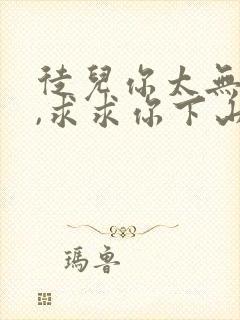 徒兒你太無
,求求你下山
瑪魯